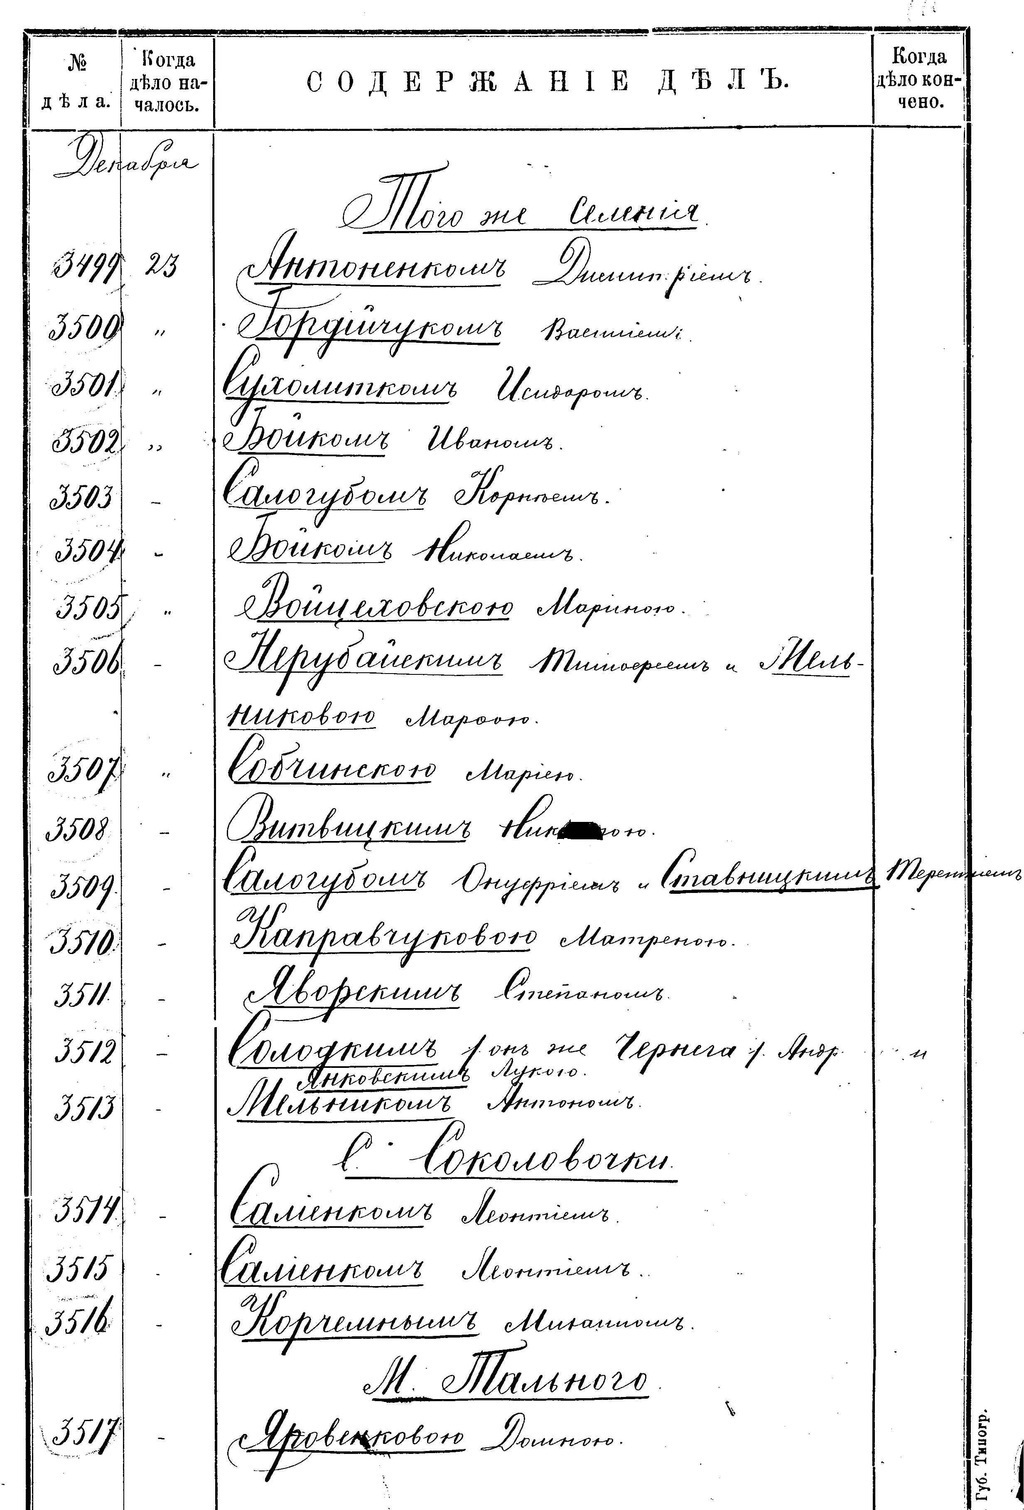 № дѣла. Когда дѣло началось. СОДЕРЖАНІЕ ДѢЛЪ. Когда дѣло кончено.
Декабря
Того же селенія.
3499 23 Антоненкомъ Дмитріемъ.
3500 „ Гордійчукомъ
3501 „ Сухолиткомъ Исидоромъ.
3502 „ Бойкомъ Иваномъ.
3503 - Салогубомъ Корнѣемъ.
3504 - Бойкомъ Николаемъ.
3505 „ Войцеховскою Мариною.
3506 - Нерубайскимъ Тимофеемъ и Мель-
никовою Марфою.
3507 „ Собчинскою Маріею.
3508 - Витвицкимъ
3509 - Салогубомъ Онуфріемъ и Ставницкимъ Терентіемъ
3510 - Каправчуковою Матреною.
3511 - Яворскимъ Степаномъ.
3512 - Солодкимъ /онъ же Чернега/. Андр.
Янковскимъ Лукою.
3513 - Мельникомъ Антономъ.
С. Соколовочки.
3514 - Саліенкомъ Леонтіемъ.
3515 - Саліенкомъ Леонтіемъ.
3516 - Корчемнымъ Михаиломъ.
М. Тального.
3517 - Яровенковою Домною.
Губ. Типогр.